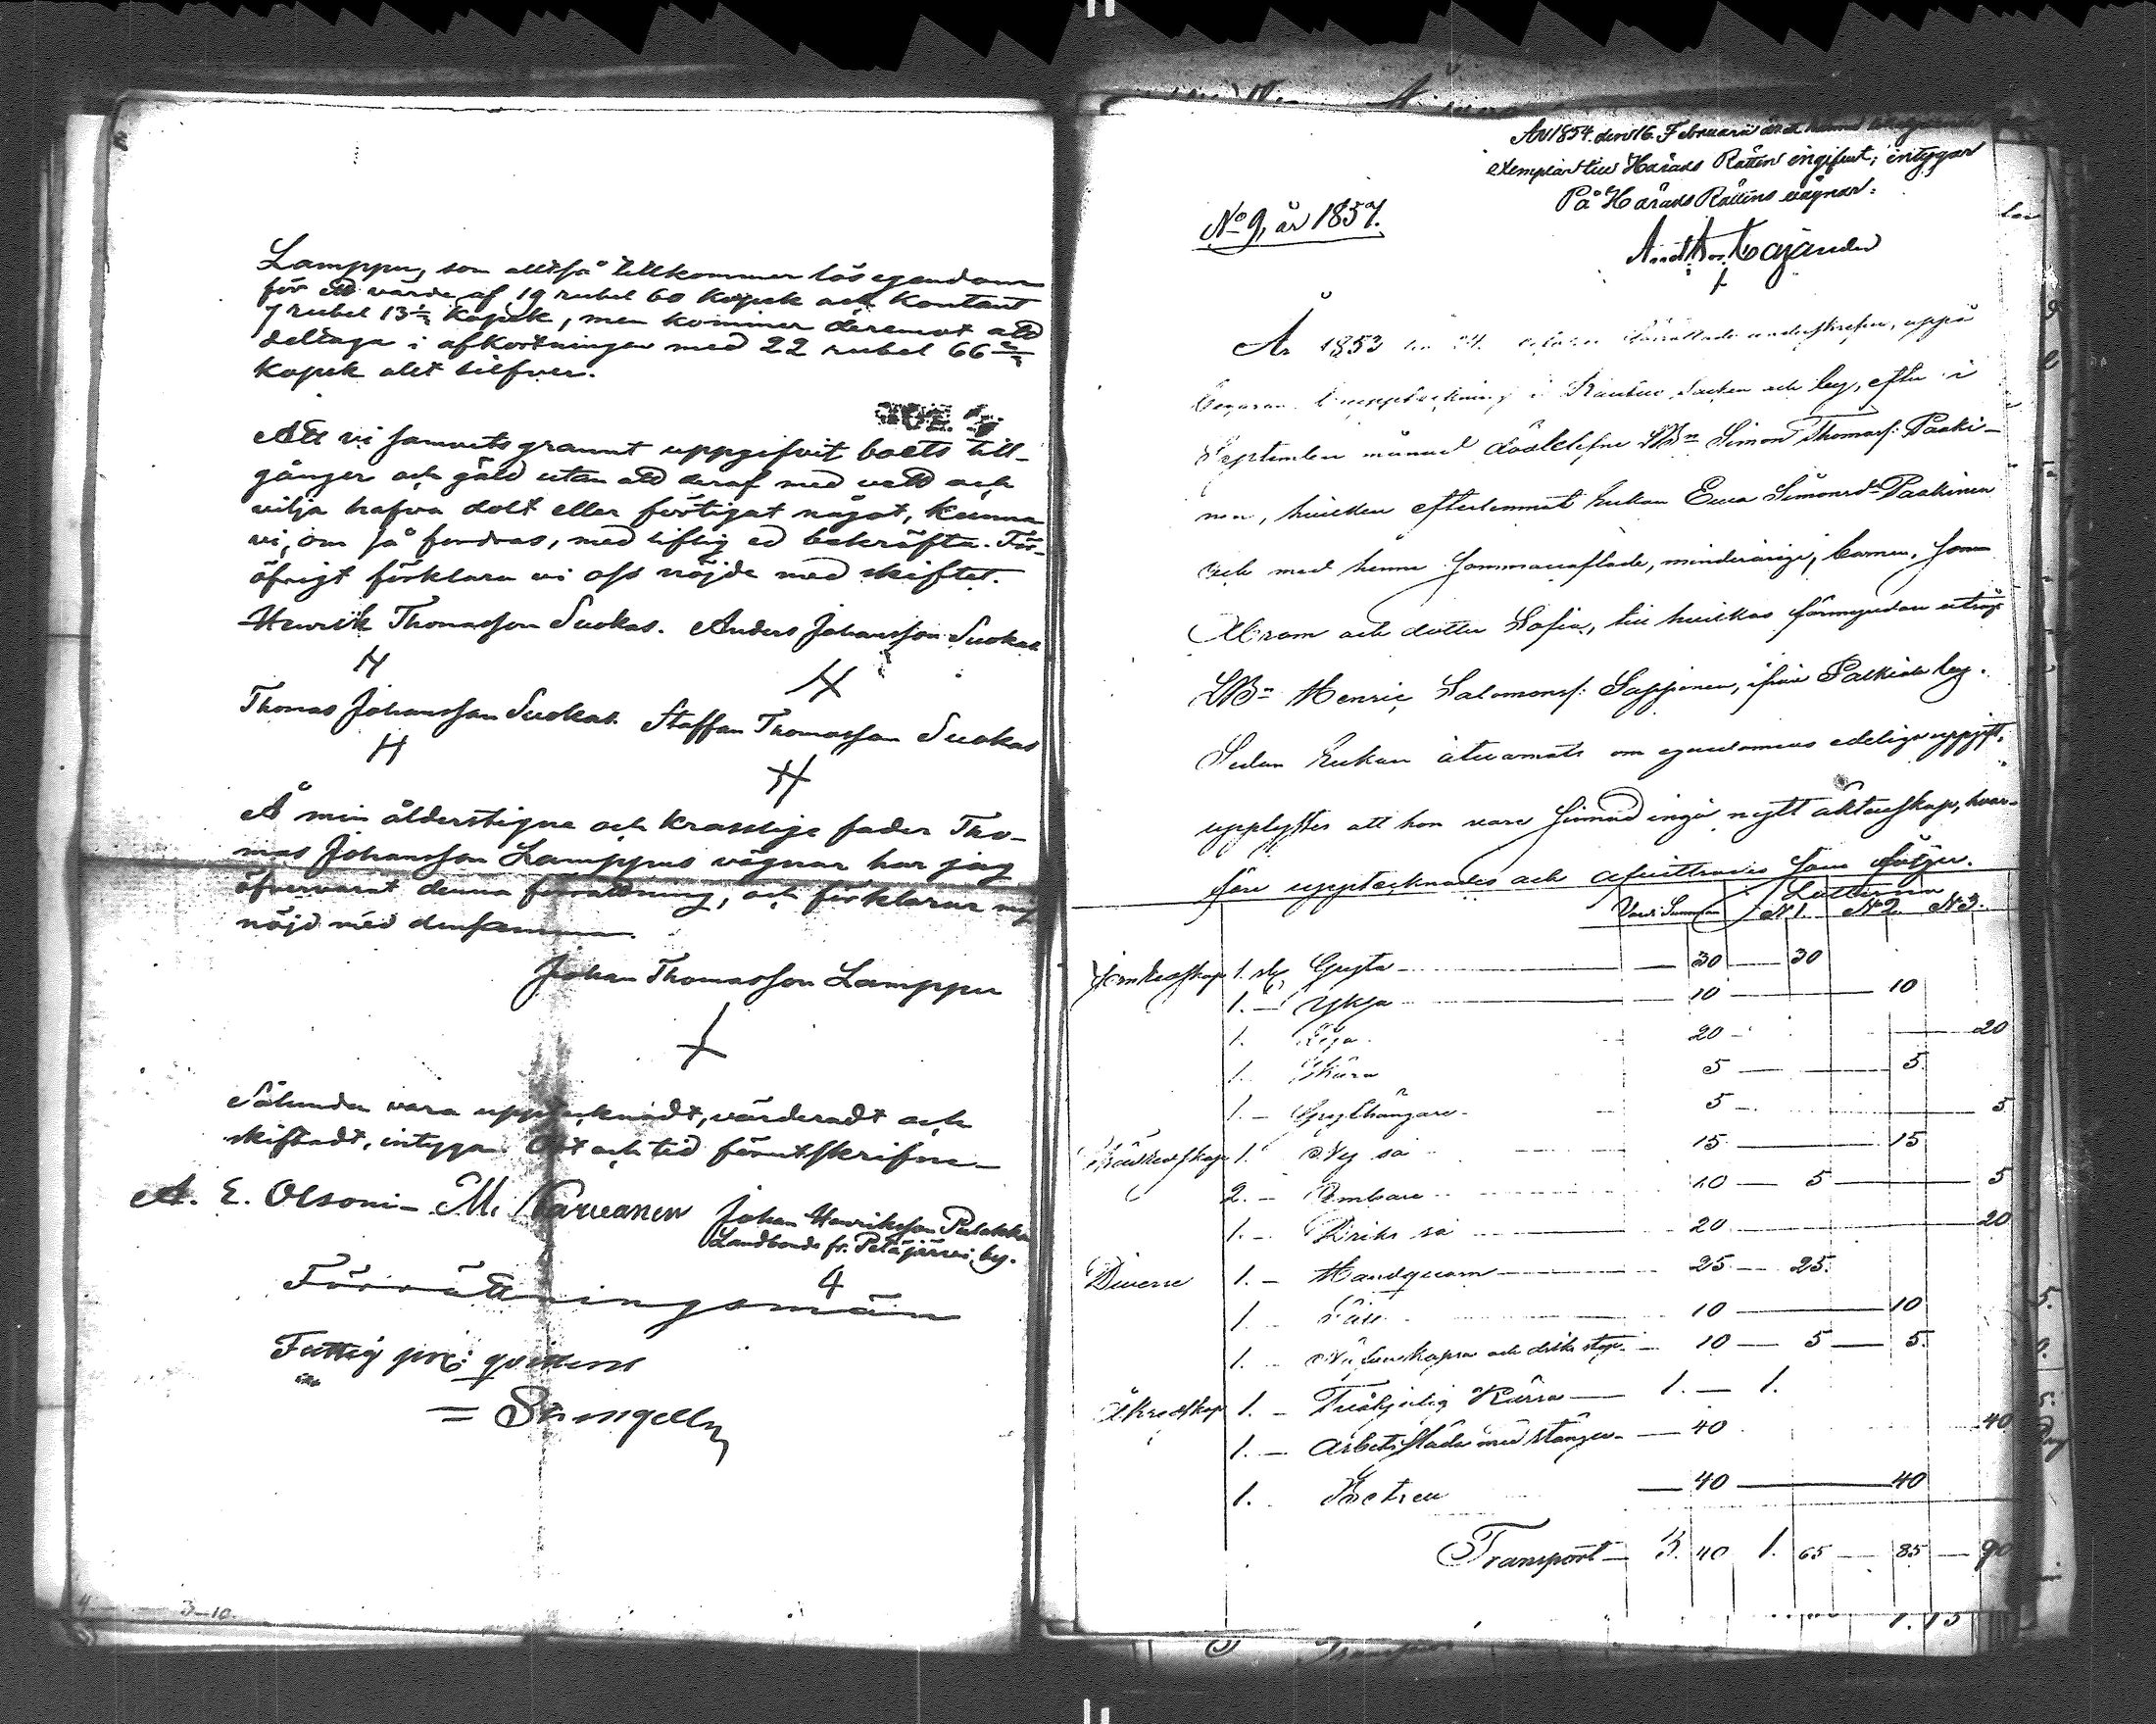 Lamppu, som alltså tillkommer lös egendom
för ett värde af 19 rubel 60 kopek och kontant
7 rubel 13 1/2 kopek, men kommer deremot att
deltaga i afkortningen med 22 rubel 66
kopek allt silfver.
Att vi samvetsgrannt uppgifvit boets till-
gånger och gäld utan att deraf med vett och
vilja hafva dolt eller förtigat något, kunna
vi, om så fordras, med liflig ed bekräfta. För-
öfrigt förklara vi oss nöjde med skiftet.
Henrik Thomasson Suokas. Anders Johansson Suokas
Thomas Johansson Suokas. Staffan Thomasson Suokas
Å min ålderstigne och krasslige fader Tho-
mas Johansson Lamppus vägnar har jag
öfvervarat denna förrättning, och förklarar mig
nöjd med densamma.
Johan Thomasson Lamppu
Sålunda vara upptecknadt, värderadt och
skiftadt, intyga. Ort och tid förutskrifne
A. E. Olsoni M. Karvanen Johan Henriksson Pulakka
Landbonde fr. Petäjärvi by.
Förrättningsmän
Fattig qvittens
4 3-10.
År 1854 den 16 Februarii
exemplar till Härads Rätten ingifvit; intygar
På Härads Rättens vägnar:
Cajander
No 9, år 1857.
År 1853 den 24 October förrättade underskrefne, uppå
begäran, boupptekning i Socken och by, efter i
September månad dödblefne LBn Simon Thomass: Paaki-
nen, hvilken efterlemnat Enkan Eva Simonsdr Paakinen
och med henne sammanaflade, minderårige, barnen, son
Abram och dotter Sofia, till hvilkas förmyndare utsågs
LBn Henric Salomonss: ifrån Palkiala by.
Sedan Enkan åtvarnats om egendomens edeliga uppgift,
upplystes att hon vore sinnad ingå nytt äktenskap, hvar-
före upptecknades och afvittrades som följer.
Lotterna
Värde Summan No 1. No 2. No 3.
Jernredskap 1. st. Gryta 30 30
1. Yxa 10 10
1. 20 20
1. Skära 5 5
1. Grythängare 5 5
Trädredskap 1. så 15 15
2. Embare 10 5 5
1. Driks så 20 20
Diverse 1. Handqvarn 25 25.
1. 10 10
1. och driks stop 10 5 5.
Åkredskap 1. Tvåhjulig Kärra 1. 1.
1. Arbets släda med stänger 40 40
1. 40 40
Transport 3. 40 1. 65 85 90